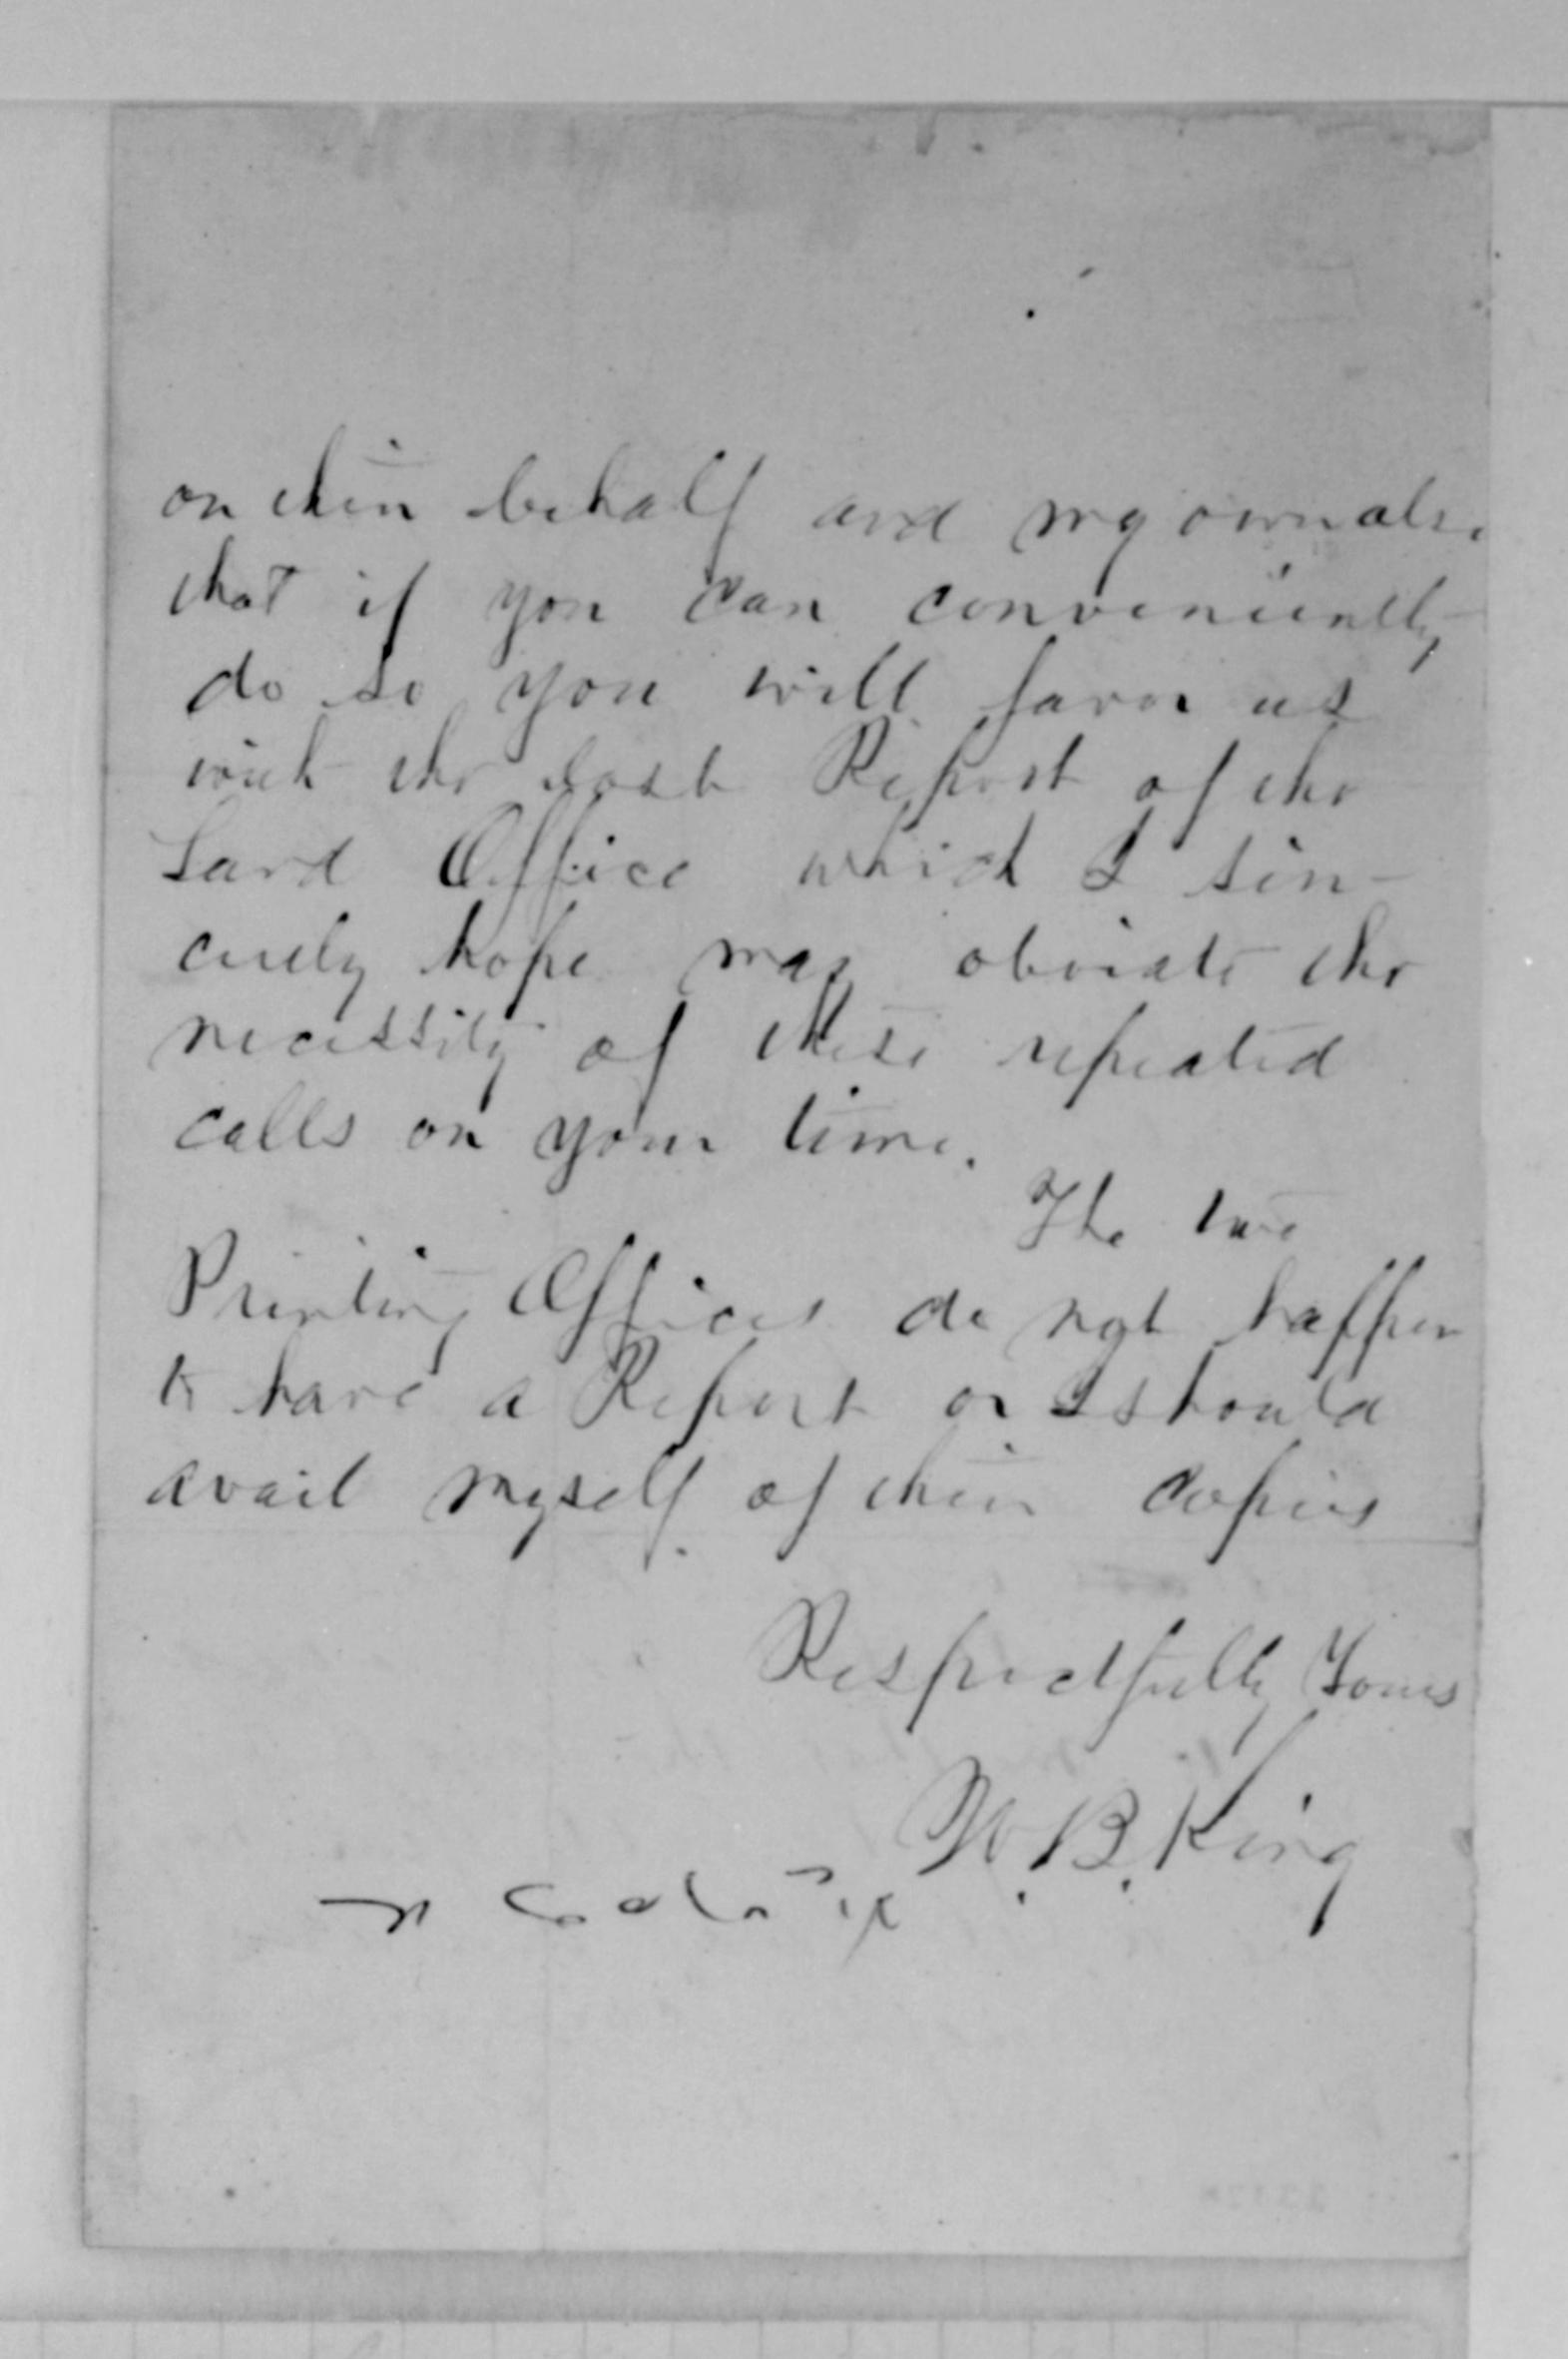 on their behalf and my own also
that if you can conveniently
do so you will favor us
with the last Report of the
Land Office which I sin-
cerely hope may obviate the
necessity of these repeated
calls on your time.
The two
Printing Offices do not happen
to have a Report or I should
avail myself of their copies
Respectfully Yours
W. B. King